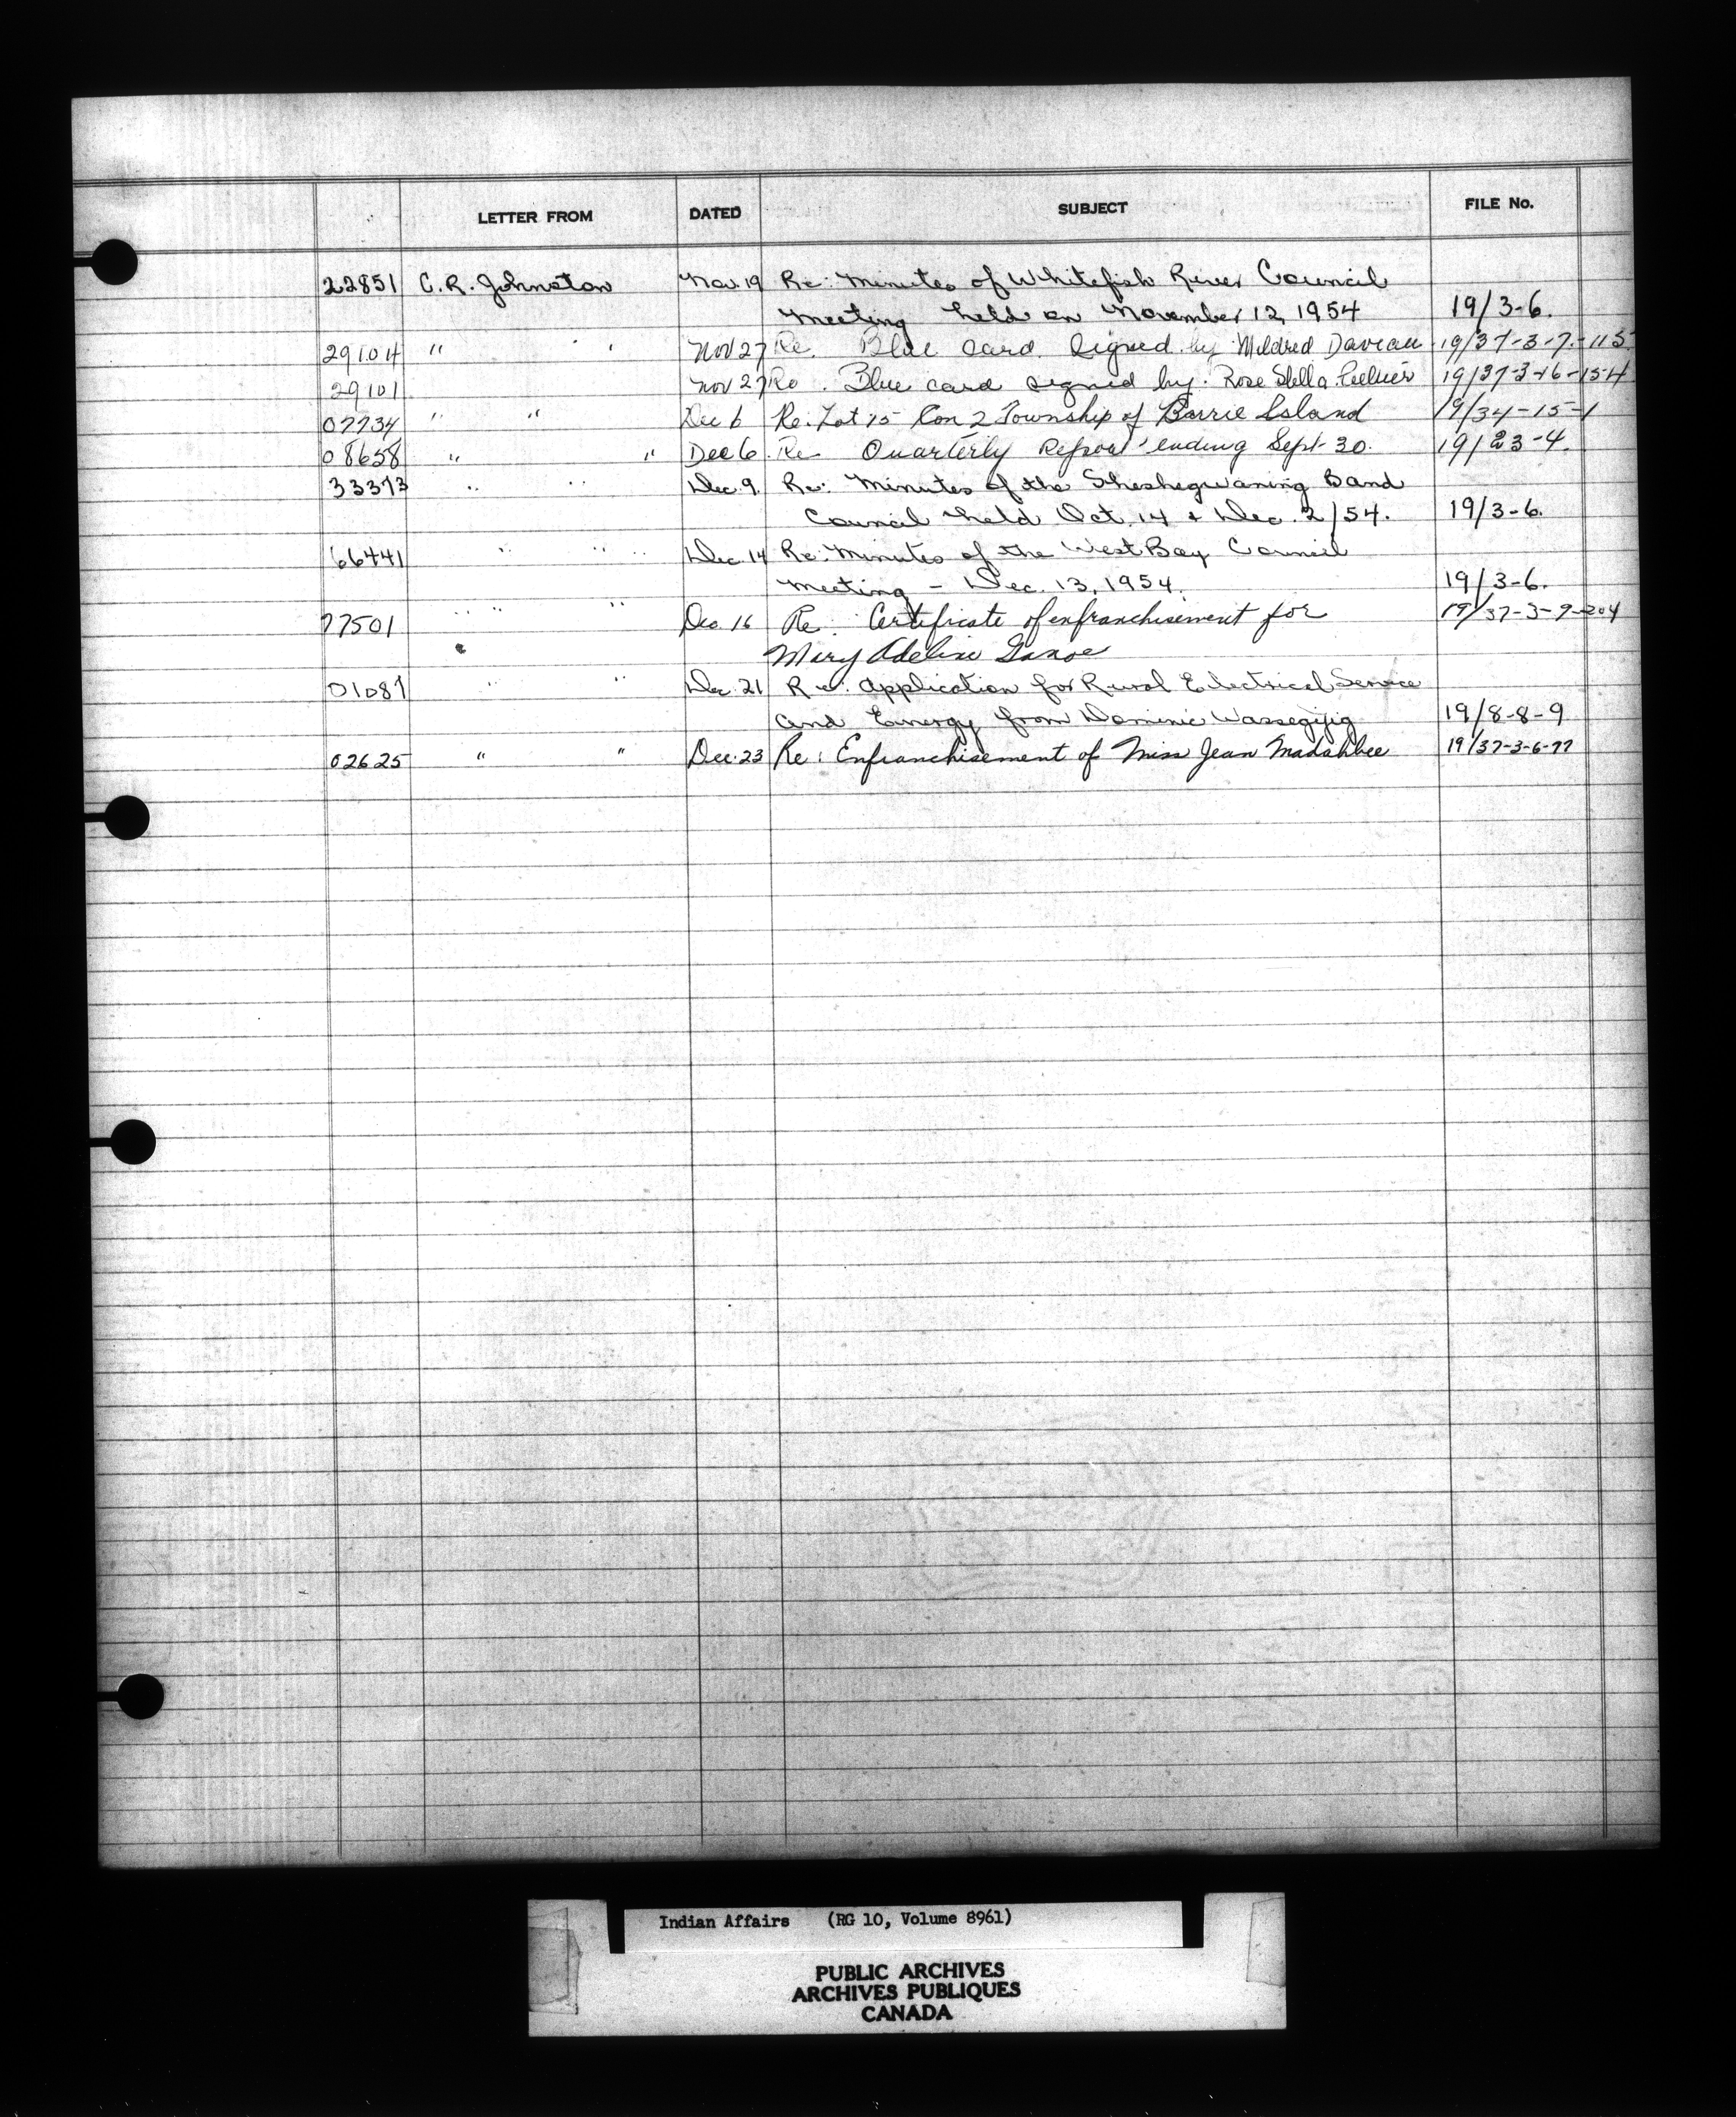 LETTER FROM DATED SUBJECT FILE No.
22851 C. R. Johnston Nov. 19 Re: Minutes of Whitefish River Council
Meeting held on November 12, 1954 19/3-6.
29104 " " Nov 27 Re. Blue card signed by Mildred Daveau 19/37-3-7-115
29101 Nov 27 Re. Blue card signed by Rose Stella 19/37-3-16-154
07734 " " Dec 6 Re. Lot 15 Con 2 Township of Barrie Island 19/34-15-1
08658 " " Dec 6. Re Quarterly Report ending Sept 30. 19/23-4.
33373 " " Dec. 9. Re: Minutes of the Sheshegwaning Band
Council held Oct. 14 + Dec. 2/54. 19/3-6.
66441 " " Dec. 14 Re: Minutes of the West Bay Council
Meeting - Dec. 13, 1954. 19/3-6.
77501 " " Dec. 16 Re: Certificate of enfranchisement for 19/37-3-9-204
Mary Adeline
01087 " " Dec. 21 Re: Application for Rural Electrical Service
and Energy from Dominic Wassegijig 19/8-8-9
02625 " " Dec. 23 Re: Enfranchisement of Miss Jean Madahbee 19/37-3-6-77
Indian Affairs (RG 10, Volume 8961)
PUBLIC ARCHIVES
ARCHIVES PUBLIQUES
CANADA